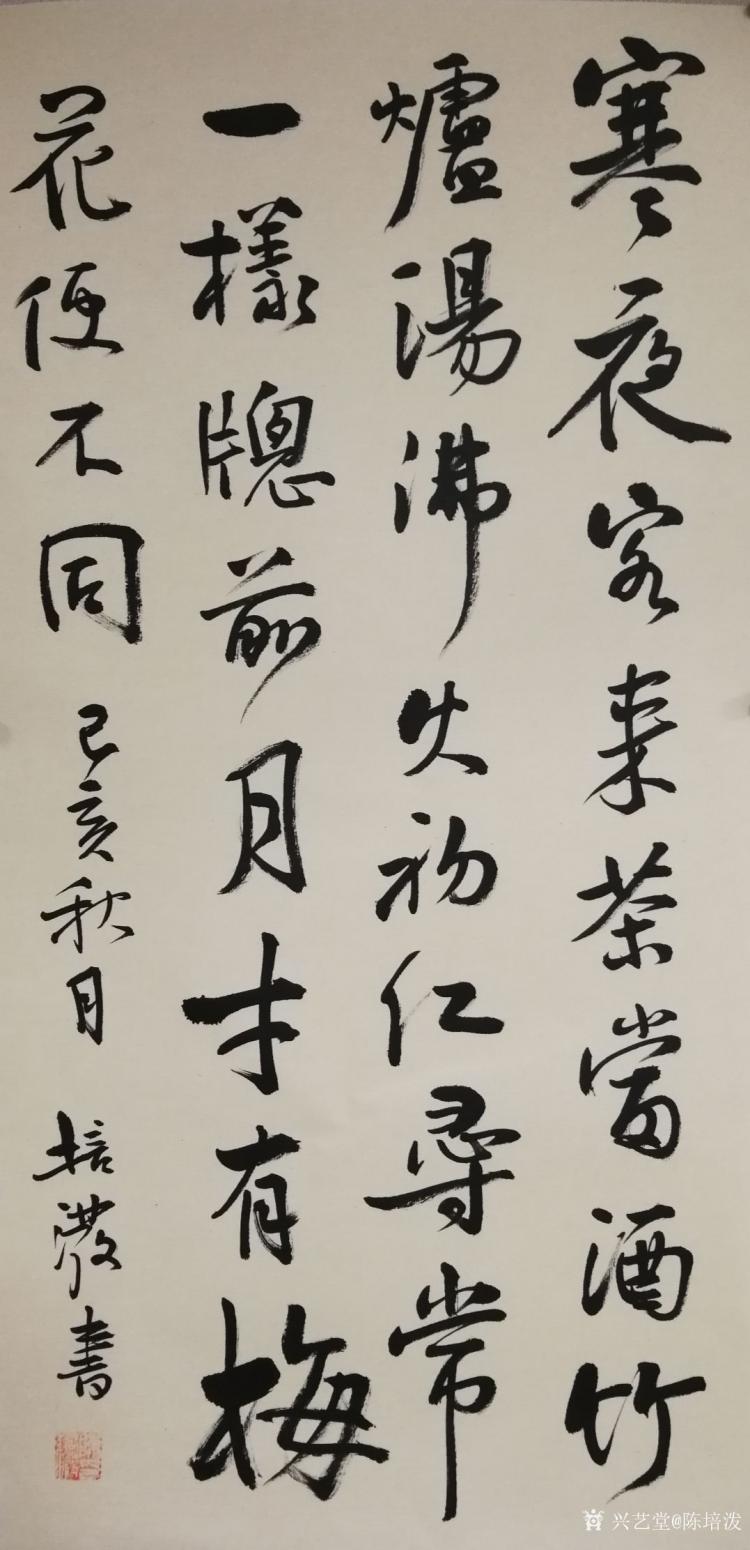 寒夜客来茶當酒竹
爐湯沸火初仁尋常
一樣牕前月才有梅
花便不同
己亥秋月 培潑書
兴艺堂@陈培泼